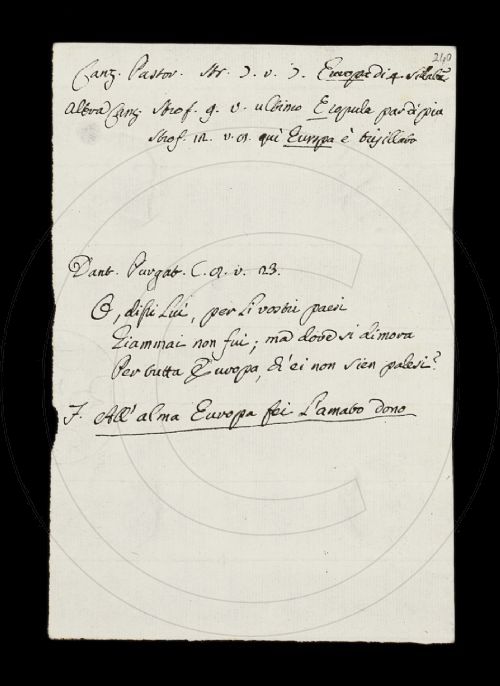 240
Canz. Pastor. Str. 3. v. 3. Europa di 4. sillabe
Altra Canz. Strof. 9. v. ultimo E copula par ci sia
Strof. 12. v. 9. quì Europa è trisillabo
Dant. Purgat. C. 8. v. 23.
O, dissi Lui, per li vostri paesi
Giammai non fui; ma dove si dimora
Per tutta Europa, ch'ei non sien palesi?
F. All'alma Europa fei l'amato dono